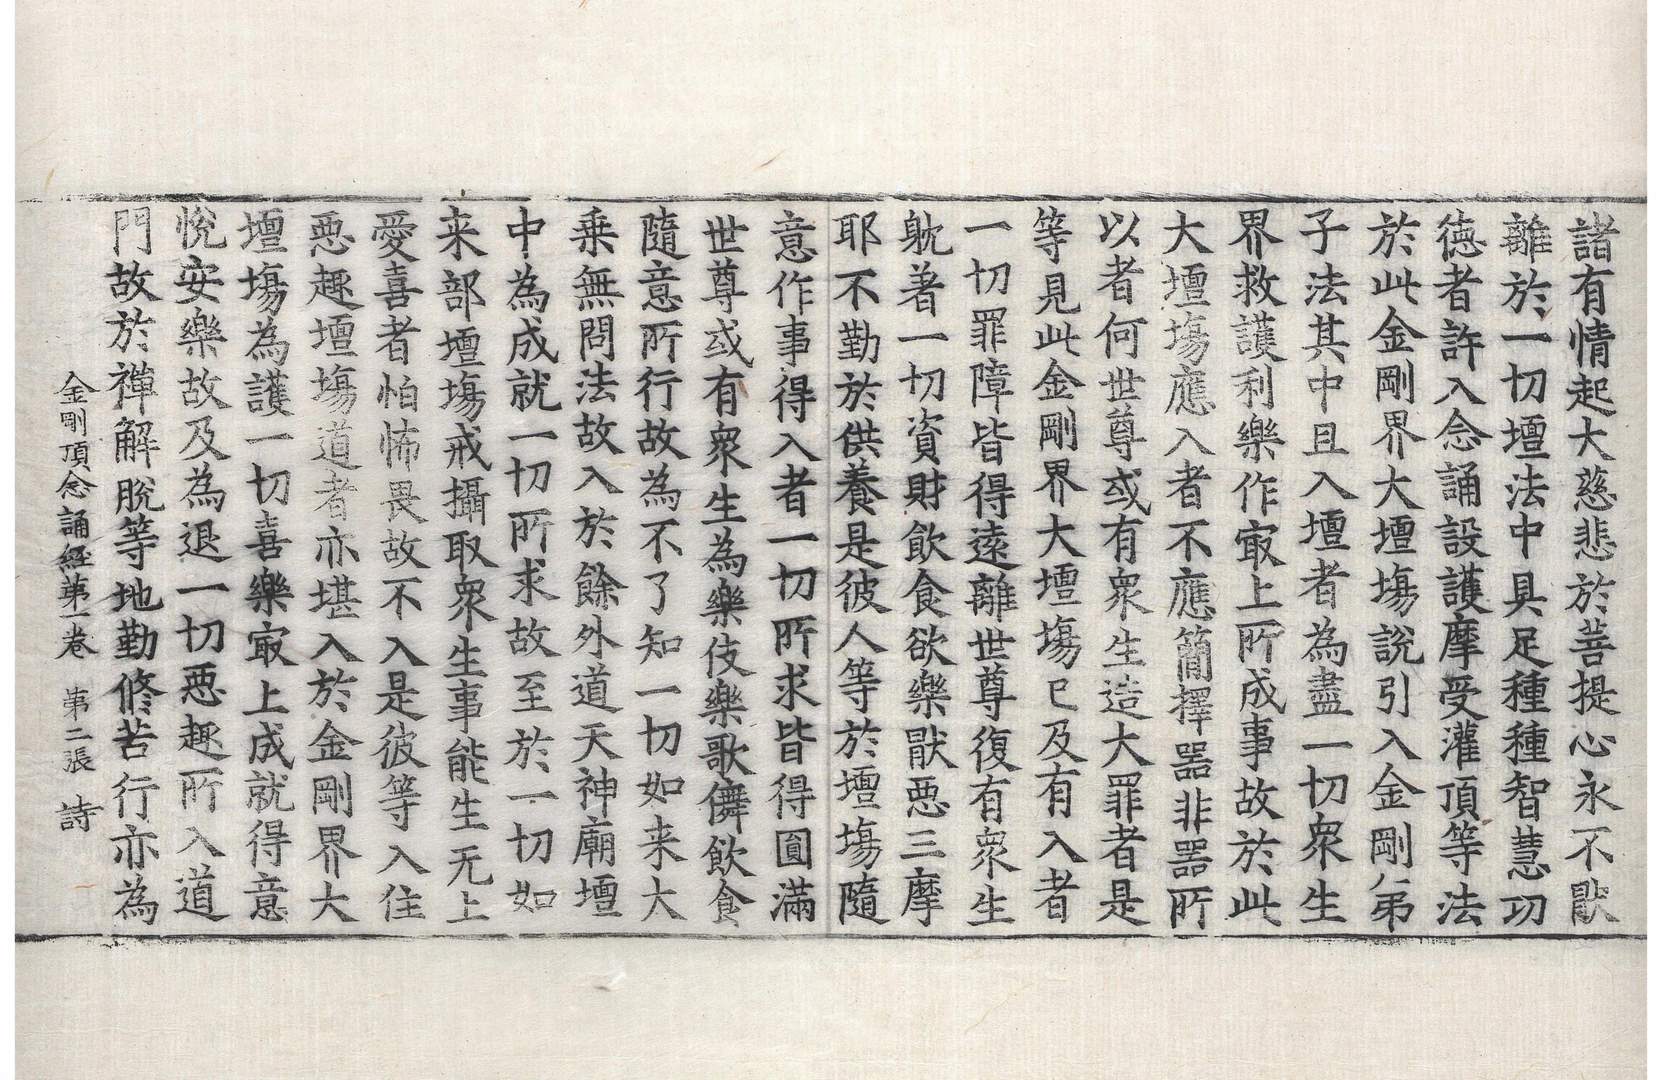 諸有情起大慈悲於菩提心永不猒
離於一切壇法中具足種種智慧功
德者許入念誦設護摩受灌頂等法
於此金剛界大壇場說引入金剛弟
子法其中且入壇者為盡一切衆生
界救護利樂作㝡上所成事故於此
大壇場應入者不應簡擇器非器所
以者何世尊或有衆生造大罪者是
等見此金剛界大壇場已及有入者
一切罪障皆得遠離世尊復有衆生
躭著一切資財飲食欲樂猒惡三摩
耶不勤於供養是彼人等於壇場隨
意作事得入者一切所求皆得圓滿
世尊或有衆生為樂伎樂歌儛飲食
隨意所行故為不了知一切如来大
乗無問法故入於餘外道天神廟壇
中為成就一切所求故至於一切如
来部壇場戒攝取衆生事能生无上
愛喜者怕怖畏故不入是彼等入住
惡趣壇場道者亦堪入於金剛界大
壇場為護一切喜樂㝡上成就得意
悅安樂故及為退一切惡趣所入道
門故於禪解脫等地勤修苦行亦為
金剛頂念誦経第一卷 第二張 詩